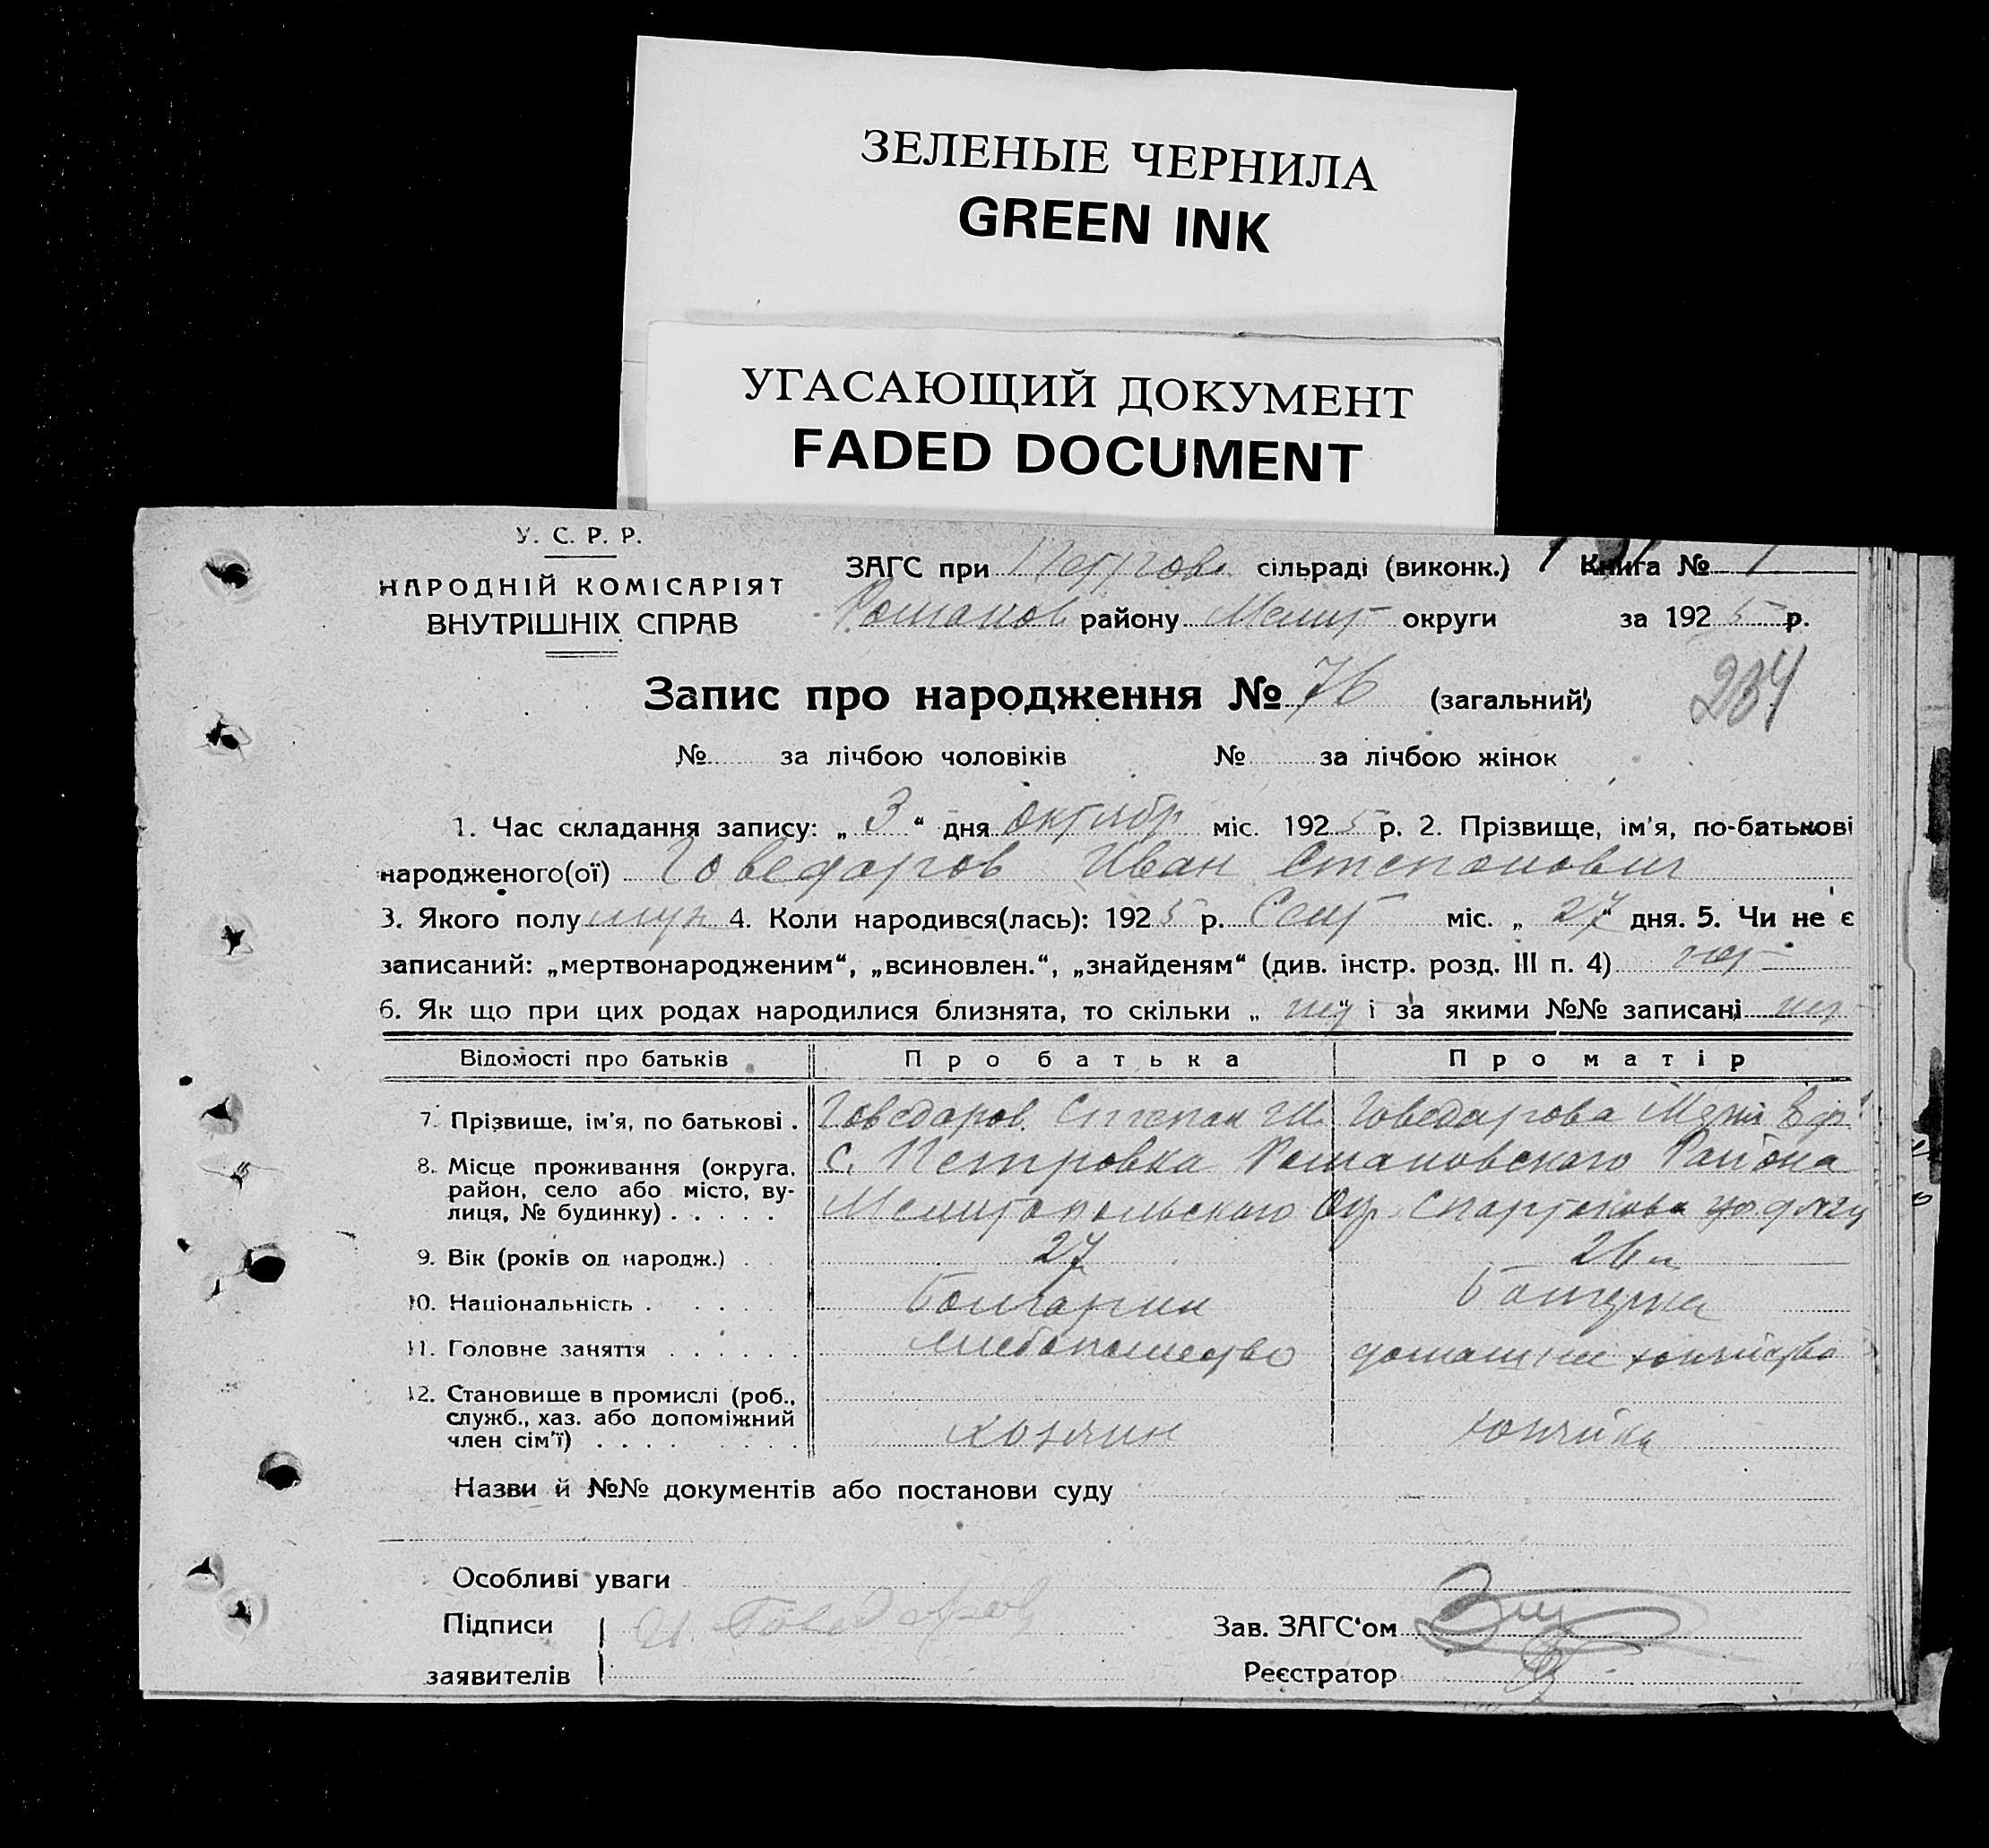 ЗЕЛЕНЫЕ ЧЕРНИЛА
GREEN INK
УГАСАЮЩИЙ ДОКУМЕНТ
FADED DOCUMENT
У. С. Р. Р.
НАРОДНІЙ КОМІСАРІЯТ
ВНУТРІШНІХ СПРАВ
ЗАГС при Петров. сільраді (виконк.) Книга № 1
Романов району Мелит округи за 1925 р.
Запис про народження № 76 (загальний)
234
№ за лічбою чоловіків № за лічбою жінок
1. Час складання запису: „ 3 “ дня октябр міс. 1925 р. 2. Прізвище, ім’я, по-батькові
народженого(ої) Говедаров Иван Степанович
3. Якого полу муж 4. Коли народився(лась): 1925 р. Сент міс. „ 27 “ дня. 5. Чи не є
записаний: „мертвонародженим“, „всиновлен.“, „знайденям“ (див. інстр. розд. III п. 4) нет
6. Як що при цих родах народилися близнята, то скільки „ нет “ і за якими №№ записані нет
Відомості про батьків Про батька Про матір
7. Прізвище, ім’я, по батькові . Говедаров Степан Говедарова
8. Місце проживання (округа, район, село або місто, вулиця, № будинку) . . . . . с. Петровка Романовскаго Района
Мелитопольскаго Окр.
9. Вік (років од народж.) . . 27 26
10. Національність . . . . . Болгарин Болгарка
11. Головне заняття . . . . . . хлебопашество домашнее хозяйство
12. Становище в промислі (роб., служб., хаз. або допоміжний член сім’ї) . . . . . . . . хозяин хозяйка
Назви й №№ документів або постанови суду
Особливі уваги
Підписи заявителів И. Говедаров
Зав. ЗАГС‘ом
Реєстратор